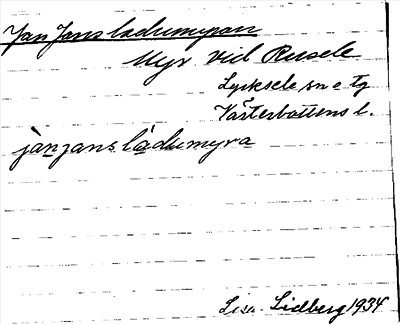 Jan Jans ladumyran
Myr vid Rusele
Lycksele sn o tg
Västerbottens l.
jànjans làdumyra
Lisa Lidberg 1934